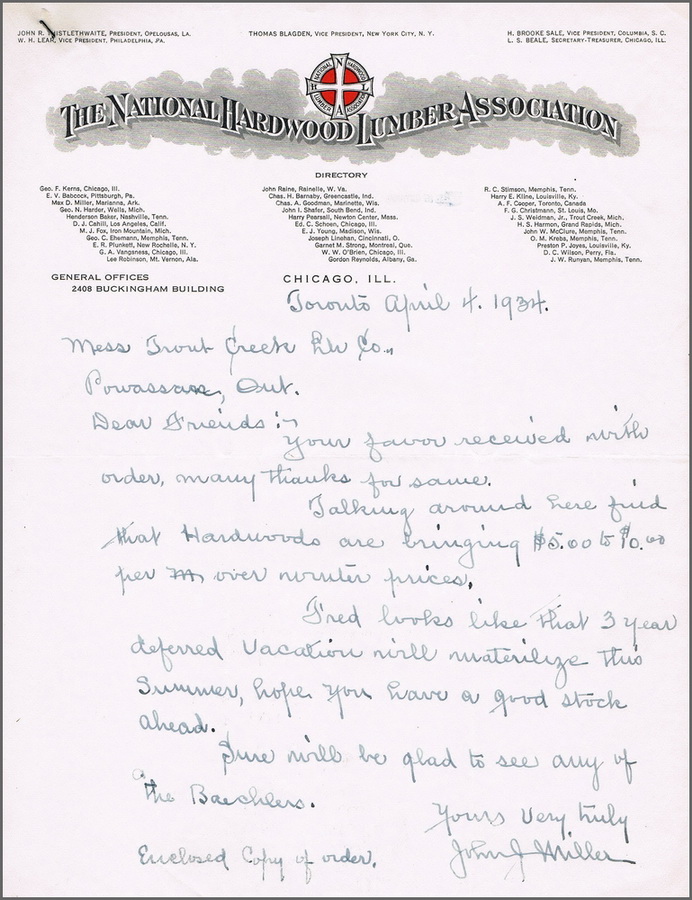 JOHN R. THISTLETHWAITE, PRESIDENT, OPELOUSAS, LA.
W. H. LEAR, VICE PRESIDENT, PHILADELPHIA, PA.
THOMAS BLAGDEN, VICE PRESIDENT, NEW YORK CITY, N. Y.
H. BROOKE SALE, VICE PRESIDENT, COLUMBIA, S. C.
L. S. BEALE, SECRETARY-TREASURER, CHICAGO, ILL.
NATIONAL HARDWOOD
N H L A
LUMBER ASSOCIATION
THE NATIONAL HARDWOOD LUMBER ASSOCIATION
DIRECTORY
Geo. F. Kerns, Chicago, Ill.
E. V. Babcock, Pittsburgh, Pa.
Max D. Miller, Marianna, Ark.
Geo. N. Harder, Wells, Mich.
Henderson Baker, Nashville, Tenn.
D. J. Cahill, Los Angeles, Calif.
M. J. Fox, Iron Mountain, Mich.
Geo. C. Ehemann, Memphis, Tenn.
E. R. Plunkett, New Rochelle, N. Y.
G. A. Vangsness, Chicago, Ill.
Lee Robinson, Mt. Vernon, Ala.
John Raine, Rainelle, W. Va.
Chas. H. Barnaby, Greencastle, Ind.
Chas. A. Goodman, Marinette, Wis.
John I. Shafer, South Bend, Ind.
Harry Pearsall, Newton Center, Mass.
Ed. C. Schoen, Chicago, Ill.
E. J. Young, Madison, Wis.
Joseph Linehan, Cincinnati, O.
Garnet M. Strong, Montreal, Que.
W. W. O'Brien, Chicago, Ill.
Gordon Reynolds, Albany, Ga.
R. C. Stimson, Memphis, Tenn.
Harry E. Kline, Louisville, Ky.
A. F. Cooper, Toronto, Canada
F. G. Christmann, St. Louis, Mo.
J. S. Weidman, Jr., Trout Creek, Mich.
H. S. Harmon, Grand Rapids, Mich.
John W. McClure, Memphis, Tenn.
O. M. Krebs, Memphis, Tenn.
Preston P. Joyes, Louisville, Ky.
D. C. Wilson, Perry, Fla.
J. W. Runyan, Memphis, Tenn.
GENERAL OFFICES
2408 BUCKINGHAM BUILDING
CHICAGO, ILL.
Toronto April 4. 1934.
Mess Trout Creek Co.,
Powassan, Ont.
Dear Friends:-
Your favor received with
order, many thanks for same.
Talking around here find
that Hardwoods are bringing $5.00 to $10.00
per M over winter prices.
Fred looks like that 3 year
deferred vacation will materilize this
Summer, hope you have a good stock
ahead.
Sure will be glad to see any of
the Baechlers.
Yours very truly
John J Miller
Enclosed Copy of order.